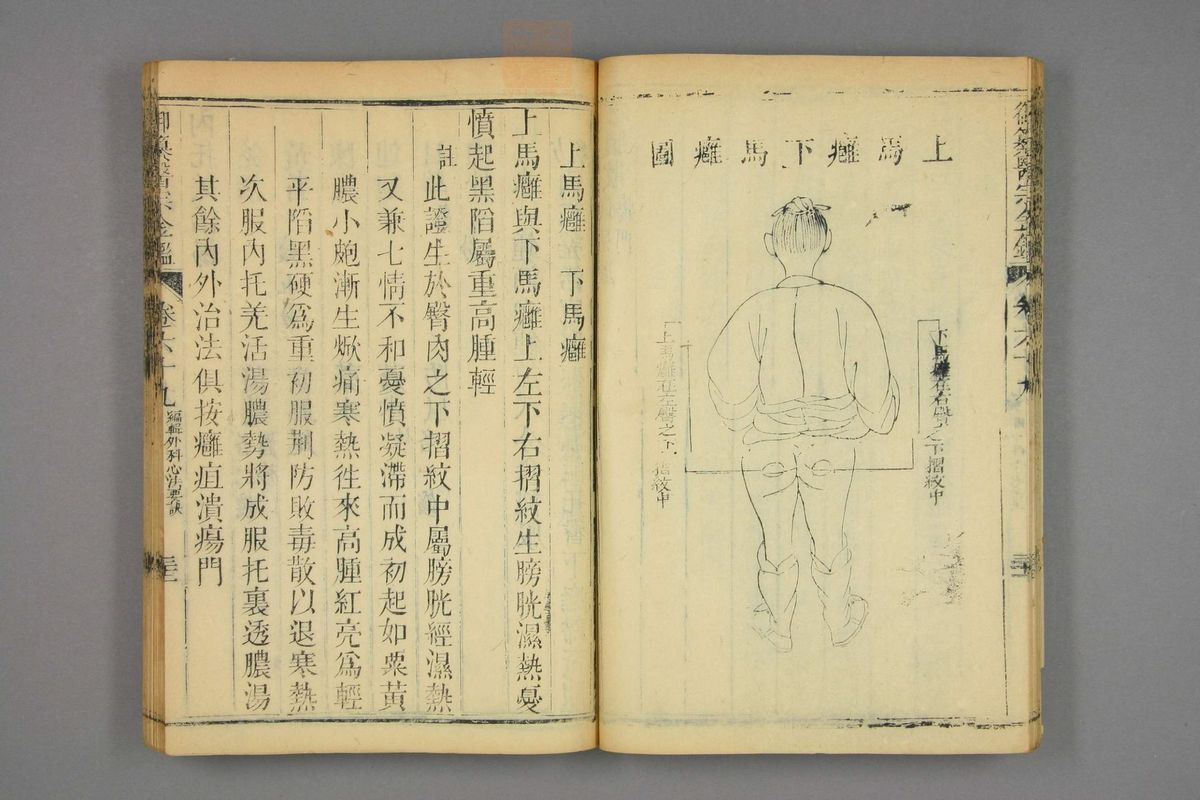 御纂醫宗金鑑
卷六十九
上馬癰下馬癰圖
下馬癰在右臀之下摺紋中
上馬癰在左臀之下摺紋中
上馬癰 下馬癰
上馬癰與下馬癰上左下右摺紋生膀胱濕熱憂
憤起黑陷屬重高腫輕
註此證生於臀肉之下摺紋中屬膀胱經濕熱
又兼七情不和憂憤凝滯而成初起如粟黃
膿小皰漸生焮痛寒熱往來高腫紅亮爲輕
平陷黑硬爲重初服荆防敗毒散以退寒熱
次服內托羌活湯膿勢將成服托裏透膿湯
其餘內外治法俱按癰疽潰瘍門
御纂醫宗金鑑
卷六十九
編輯外科心法要訣